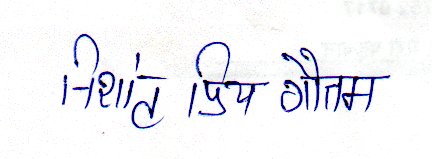 निशांत प्रिय गौतम